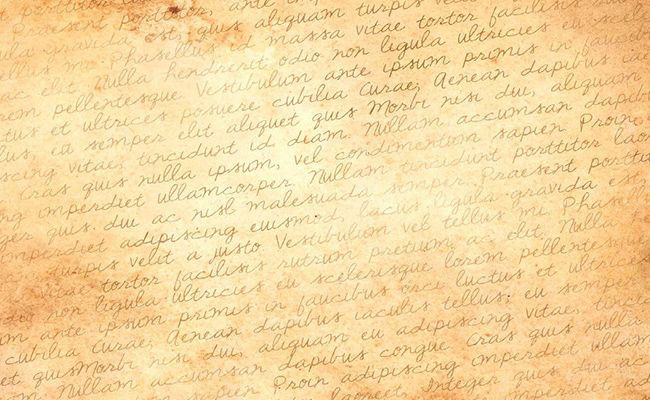 porttitor
Praesent porttitor, ante in
gravida est, quis aliquam turpis
tellus mi. Phasellus id massa vitae tortor facilisis
ac elit. Nulla hendrerit odio non ligula ultricies eu
pellentesque Vestibulum ante ipsum primis in
et ultrices posuere cubilia Curae; Aenean dapibus
eu semper elit aliquet quis Morbi nisi dui, aliquam
vitae, tincidunt id diam. Nullam accumsan
Cras quis nulla ipsum, vel condimentum sapien Proin
imperdiet ullamcorper. Nullam tincidunt porttitor
quis dui ac nisl malesuada semper. Praesent
imperdiet adipiscing euismod, lacus ligula gravida est,
turpis velit a justo Vestibulum vel tellus mi.
vitae tortor facilisis rutrum pretium ac elit. Nulla
non ligula ultricies eu scelerisque lorem pellentesque
ante ipsum primis in faucibus orci luctus et ultrices
cubilia Curae; Aenean dapibus iaculis tellus, eu semper
et quisMorbi nisi dui, aliquam eu adipiscing vitae,
Nullam accumsan dapibus congue Cras quis nulla
sapien Proin adipiscing imperdiet
laoreet. Integer quis dui ac